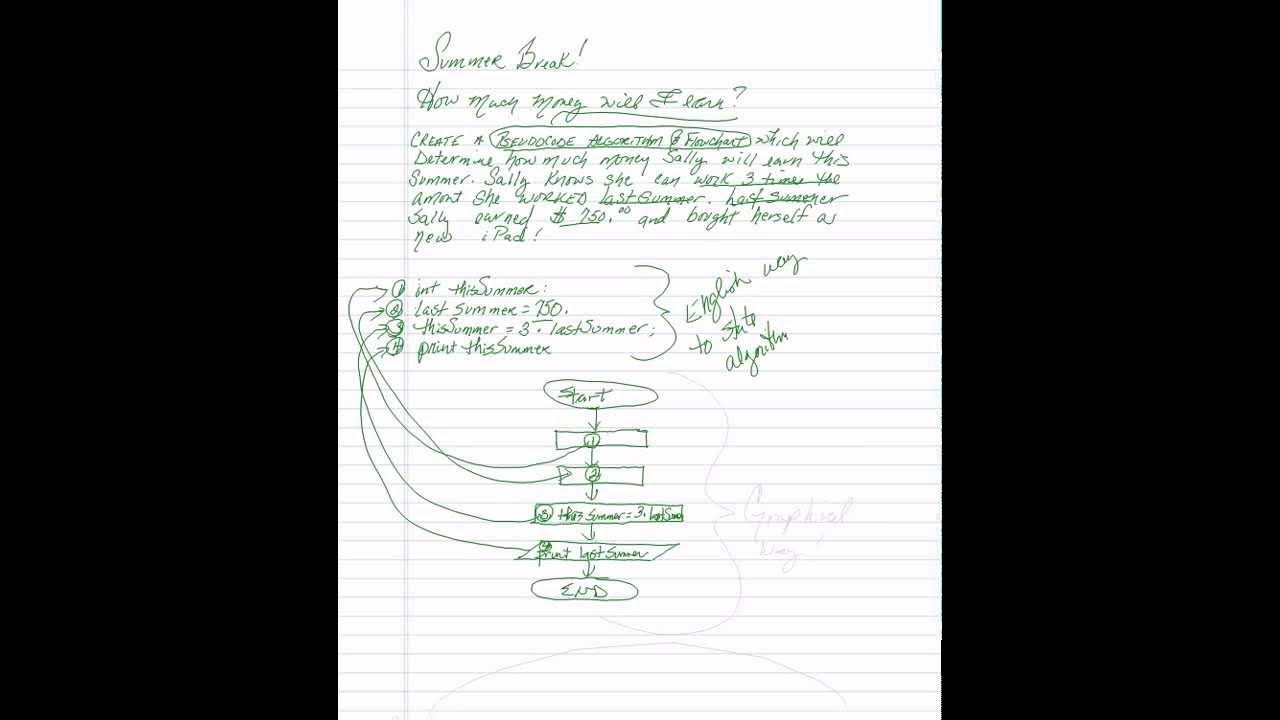 Summer Break!
How much money will I earn?
CREATE A PSEUDOCODE ALGORITHM & Flowchart which will
Determine how much money Sally will earn this
Summer. Sally knows she can work 3 times the
amont she WORKED last Summer. Last Summer
Sally earned $ 750.00 and bought herself as
new iPad!
① int thisSummer:
② last Summer = 750.
③ thisSummer = 3 · lastSummer;
④ print thisSummer
English way
to state
algorithm
Start
①
②
③ this Summer = 3 · lastSum
④ print lastSummer
END
Graphical
way!